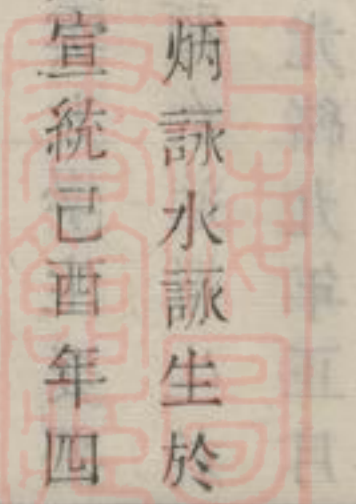 炳詠水詠生於
宣統己酉年四